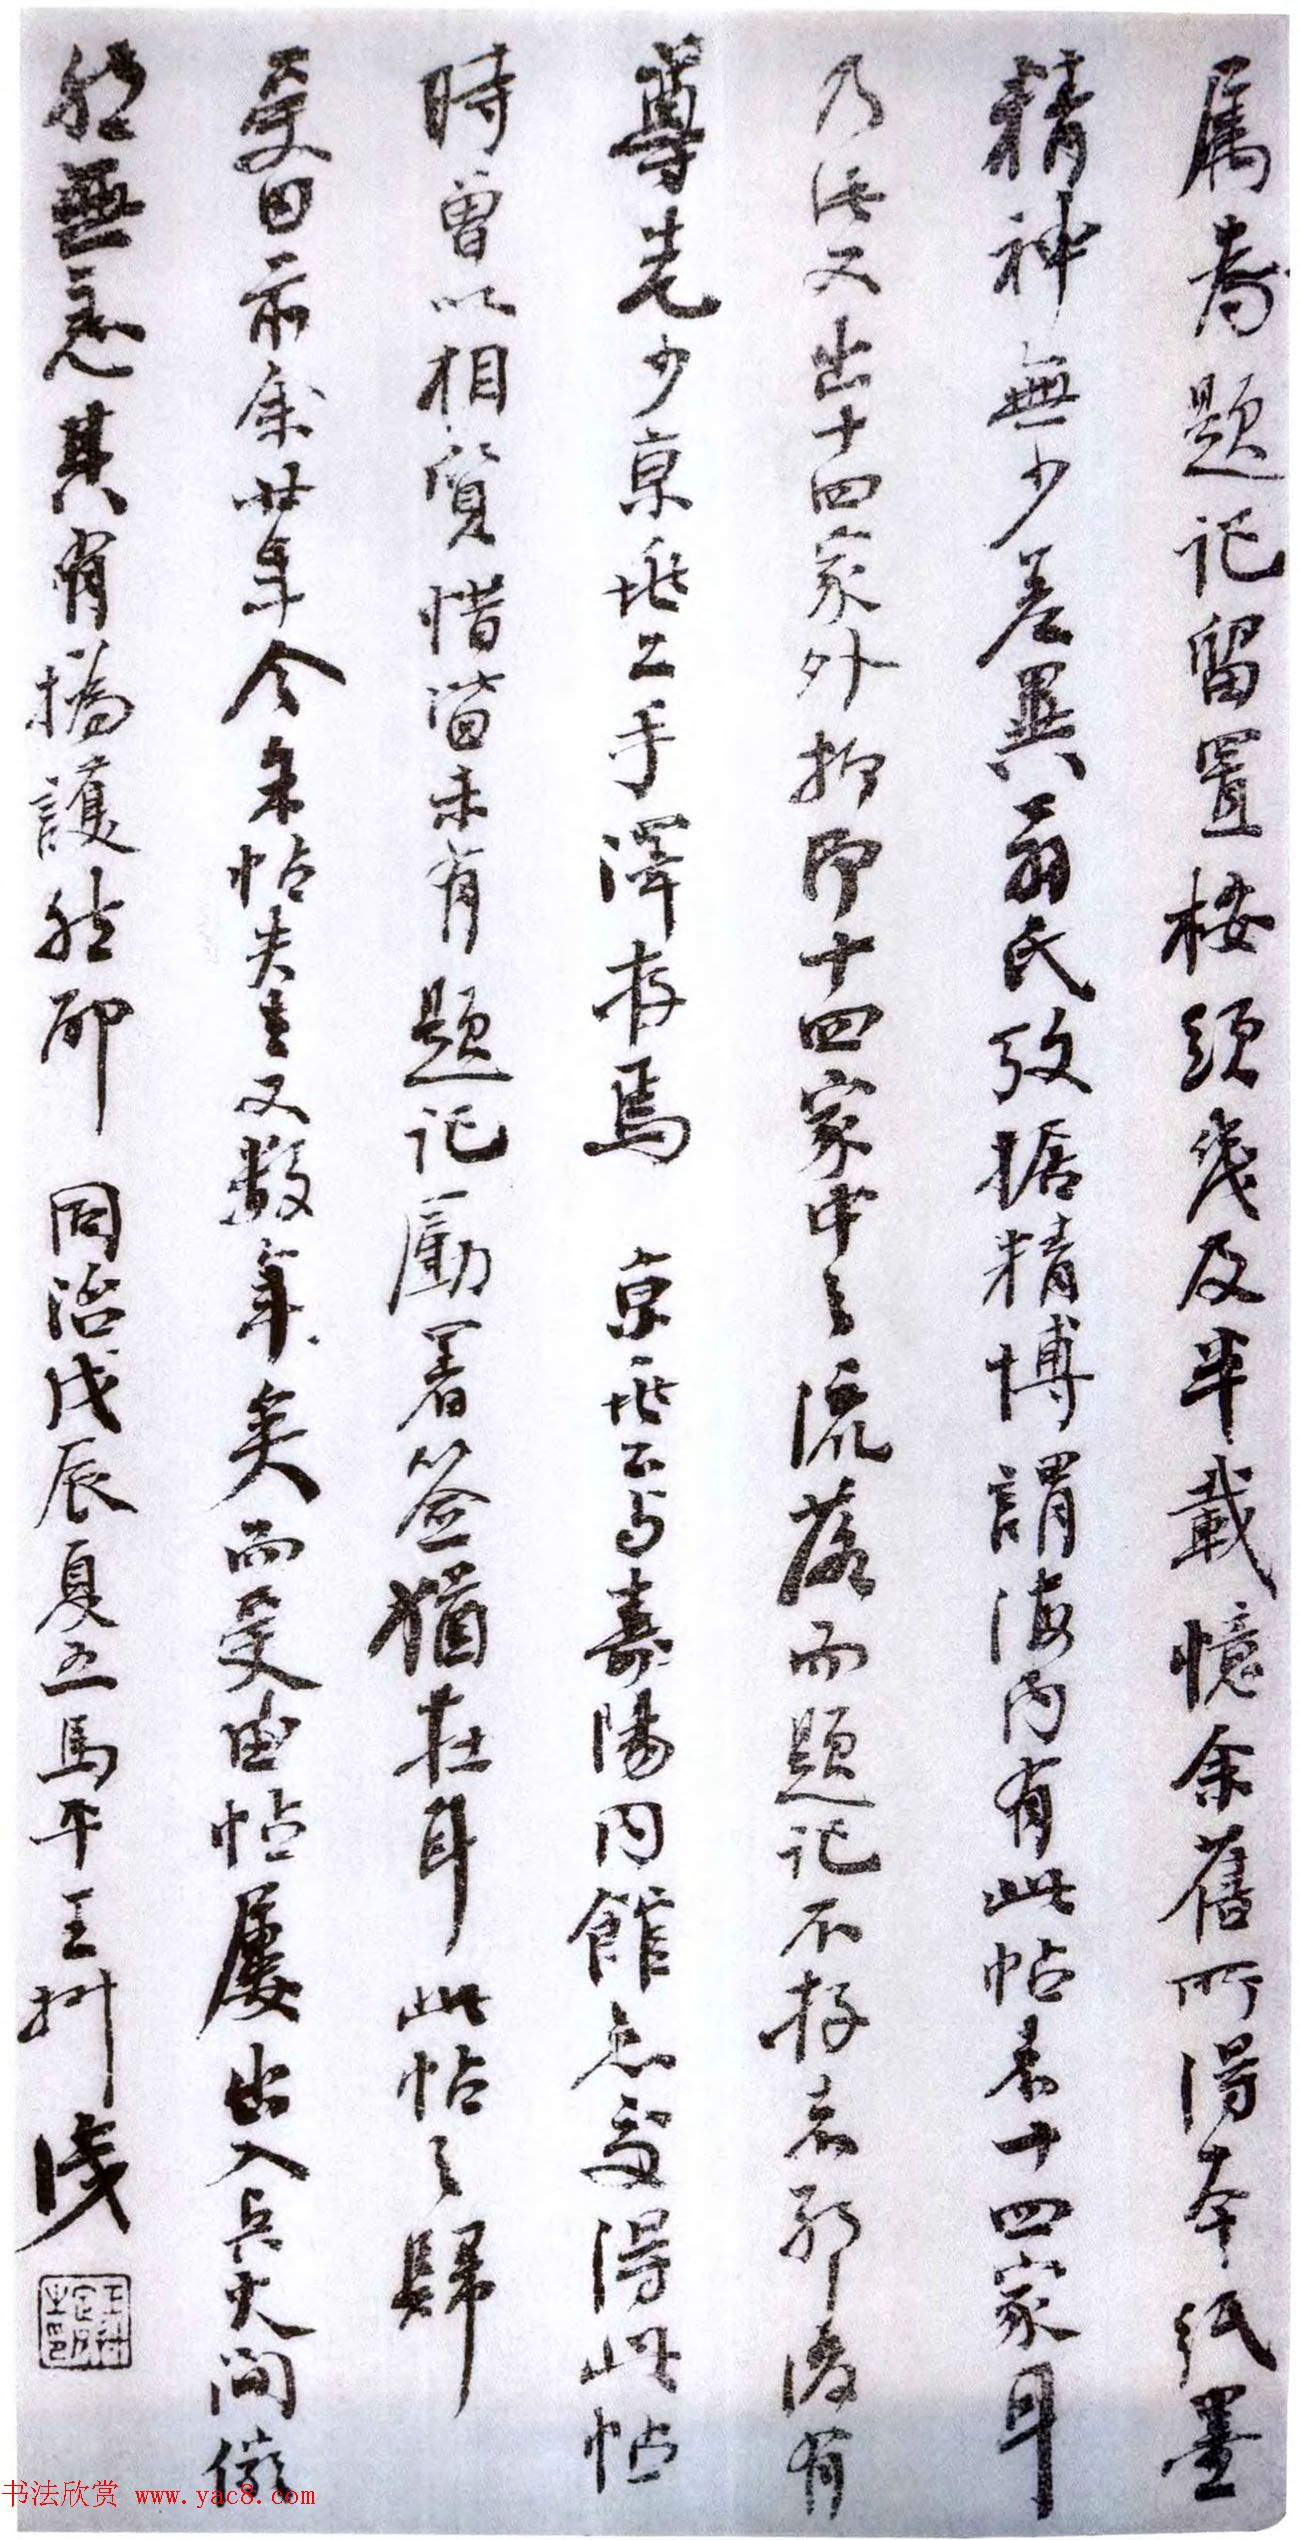 属為題記留置按頭幾及半載憶余舊所得本紙墨
精神無少差異翁氏攷據精博謂海内有此帖者十四家耳
乃此又出十四家外抑即十四家中之流落而題記不存者耶後有
尊先少京兆公手澤存焉 京兆公与壽陽同館至交得此帖
時曾以相質惜皆未有題記勵署簽猶在耳此帖之歸
受田示余廿年今朱帖失去又數年矣而受田帖屢出入兵火間儼
然無恙其有撝護然耶 同治戊辰夏五馬平王拯識
书法欣赏 www.yac8.com